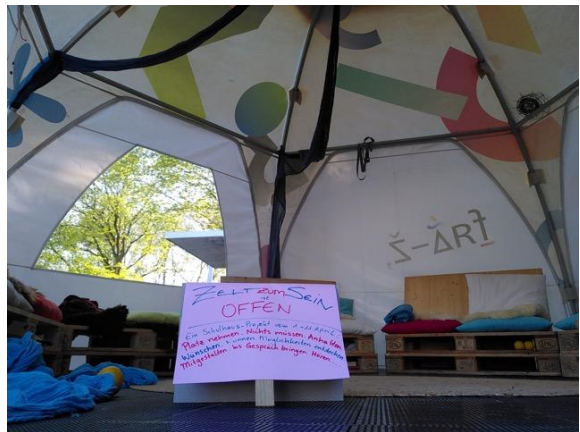 Z-ART
ZELT ZUM SEIN
OFFEN
Ein Schulhaus-Projekt vom April
Platz nehmen. Nichts müssen. Anhalten
Wünschen können Möglichkeiten entdecken
Mitgestalten ins Gespräch bringen Hören.